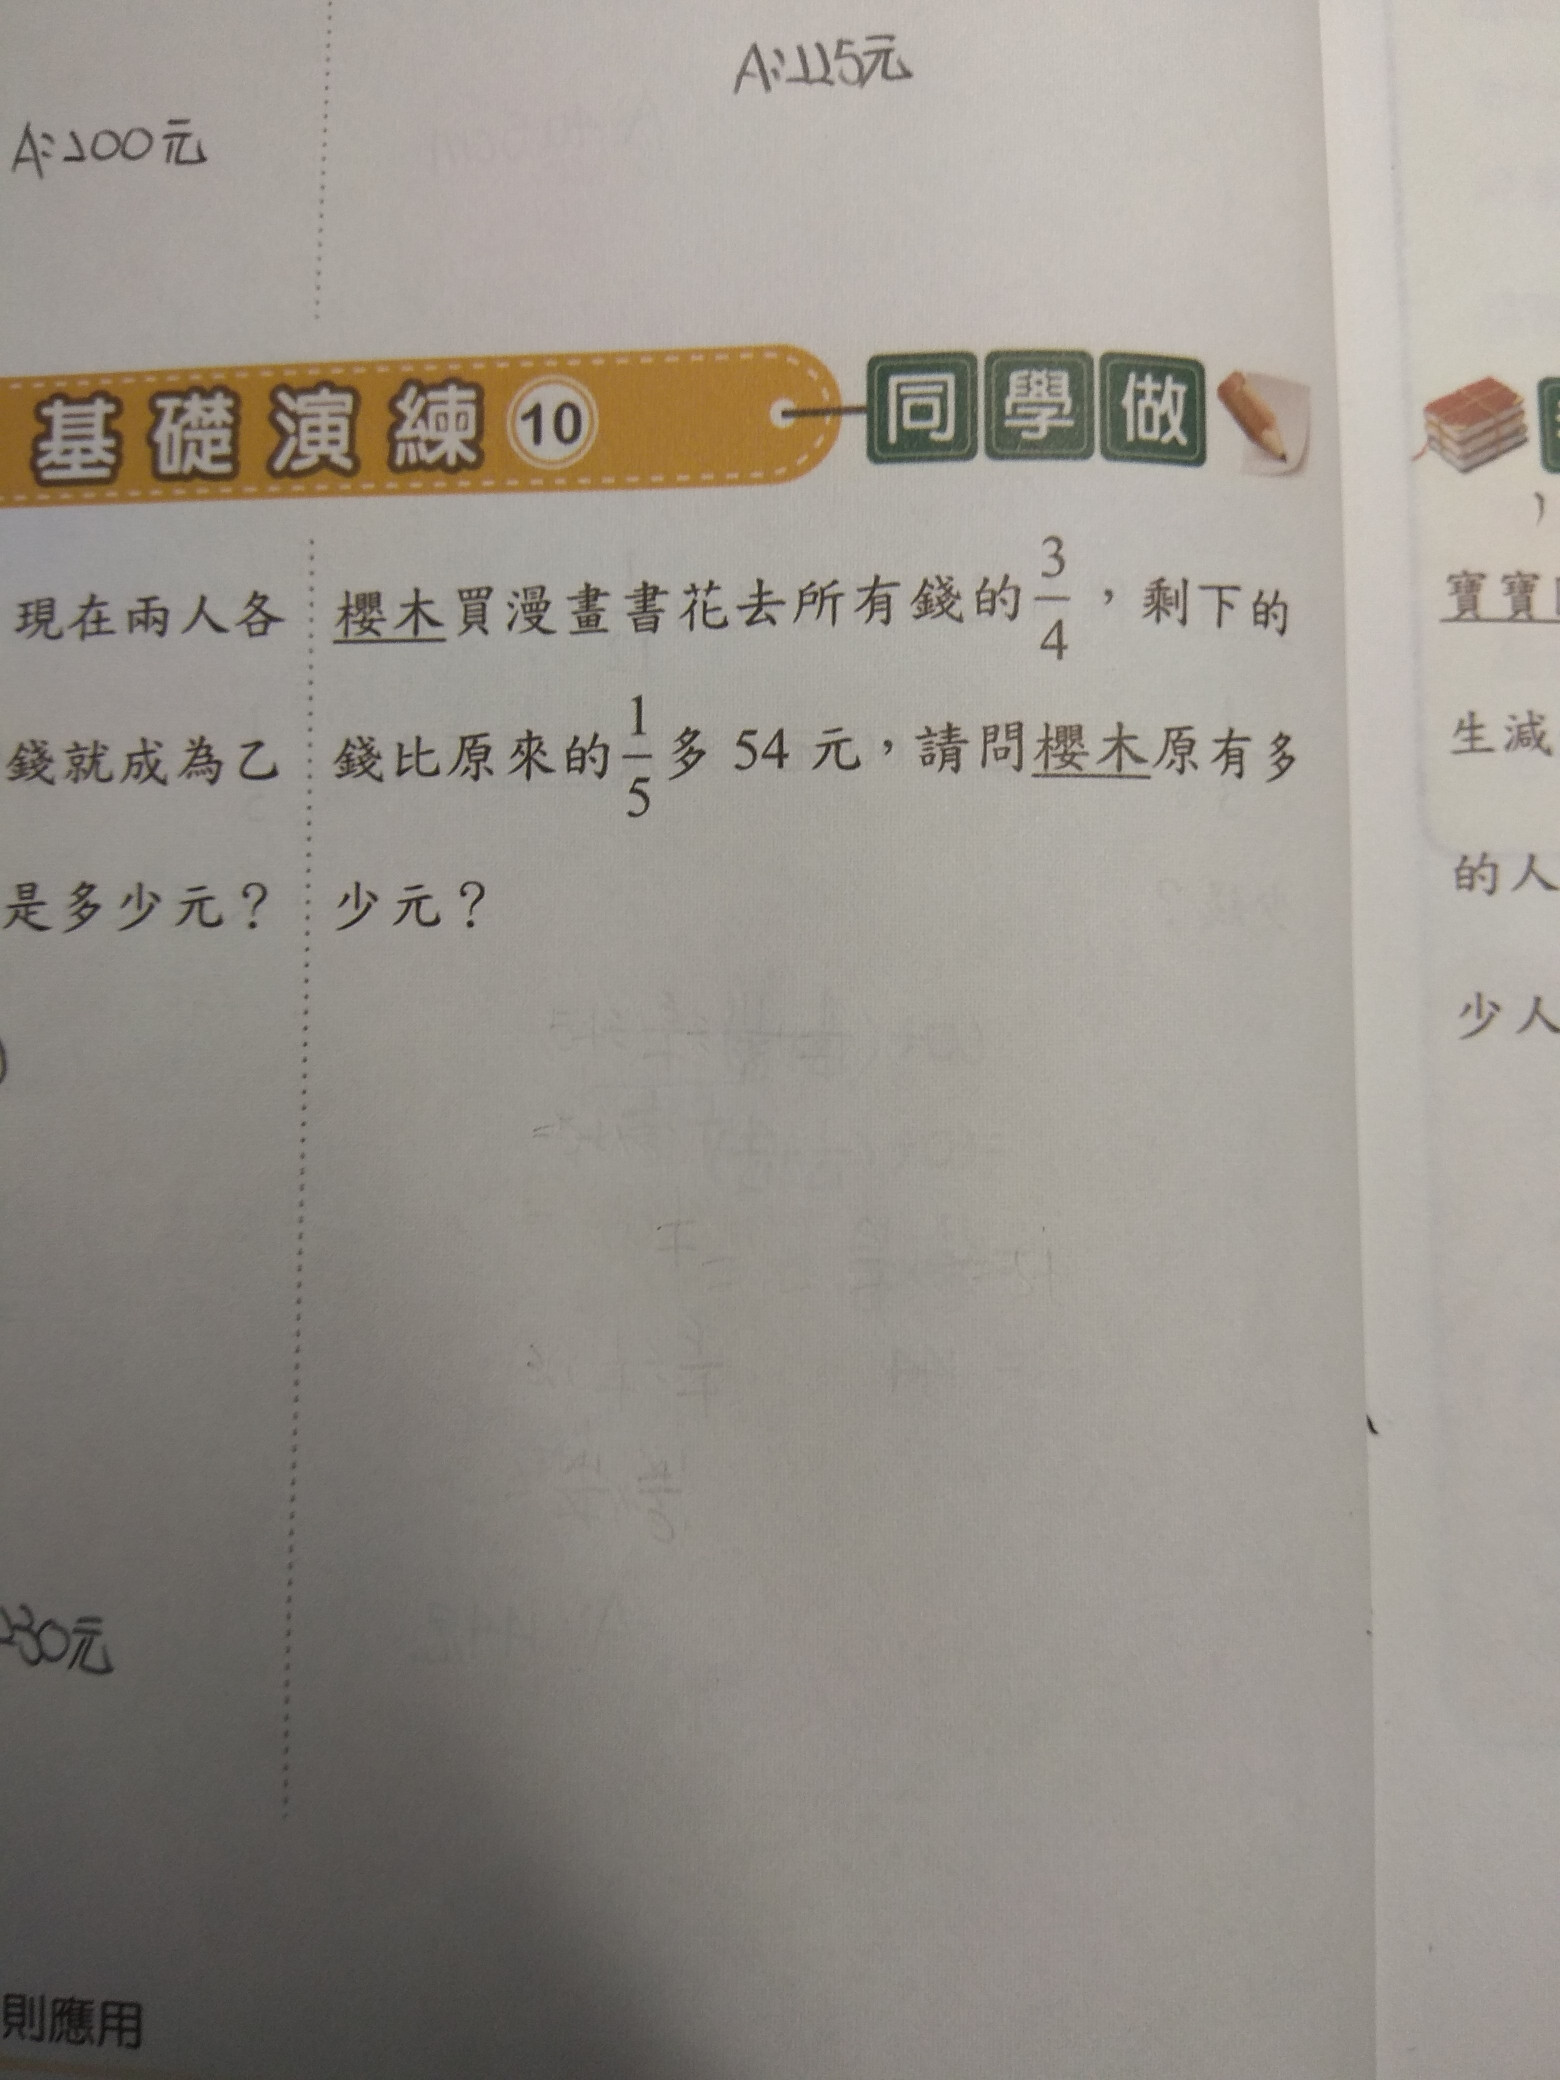 A:225元
A:200元
基礎演練10
同學做
現在兩人各
錢就成為乙
是多少元？
櫻木買漫畫書花去所有錢的3/4，剩下的
錢比原來的1/5多 54 元，請問櫻木原有多
少元？
30元
則應用
寶寶
生減
的人
少人